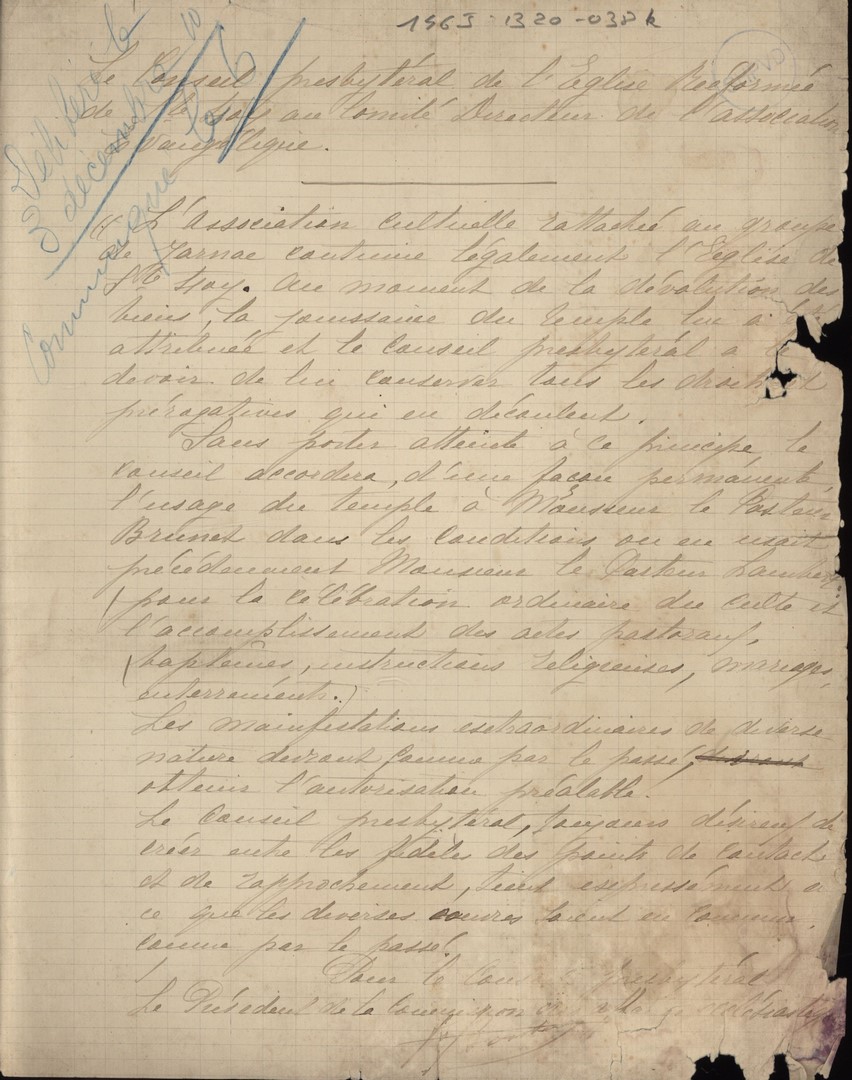 1963-1320-038k
Délibéré le
3 décembre 10
Communiqué le 6
Le Conseil presbytéral de l'Eglise Réformée
de Ste Foy au Comité Directeur de l'association
Evangélique.
L'Association cultuelle rattachée au groupe
de Jarnac continue légalement l'Eglise de
Ste Foy. Au moment de la dévolution des
biens, la jouissance du temple lui a
attribuée et le Conseil presbytéral a le
devoir de lui conserver tous les droits et
prérogatives qui en découlent.
Sans porter atteinte à ce principe, le
Conseil accordera, d'une façon permanente,
l'usage du temple à Monsieur le Pasteur
Brunet dans les conditions où en usait
précédemment Monsieur le Pasteur Lambert
(pour la célébration ordinaire du culte et
l'accomplissement des actes pastoraux,
(baptêmes, instructions religieuses, mariages,
enterrements.)
Les manifestations extraordinaires de diverse
nature devront comme par le passé, devront
obtenir l'autorisation préalable.
Le Conseil presbytéral, toujours désireux de
créer entre les fidèles des points de contact
et de rapprochement, tient expressément à
ce que les diverses œuvres soient en commun,
comme par le passé.
Pour le Conseil presbytéral
Le Président de la Commission